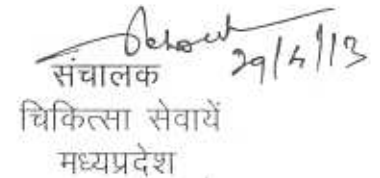 29/4/13
संचालक
चिकित्सा सेवायें
मध्यप्रदेश